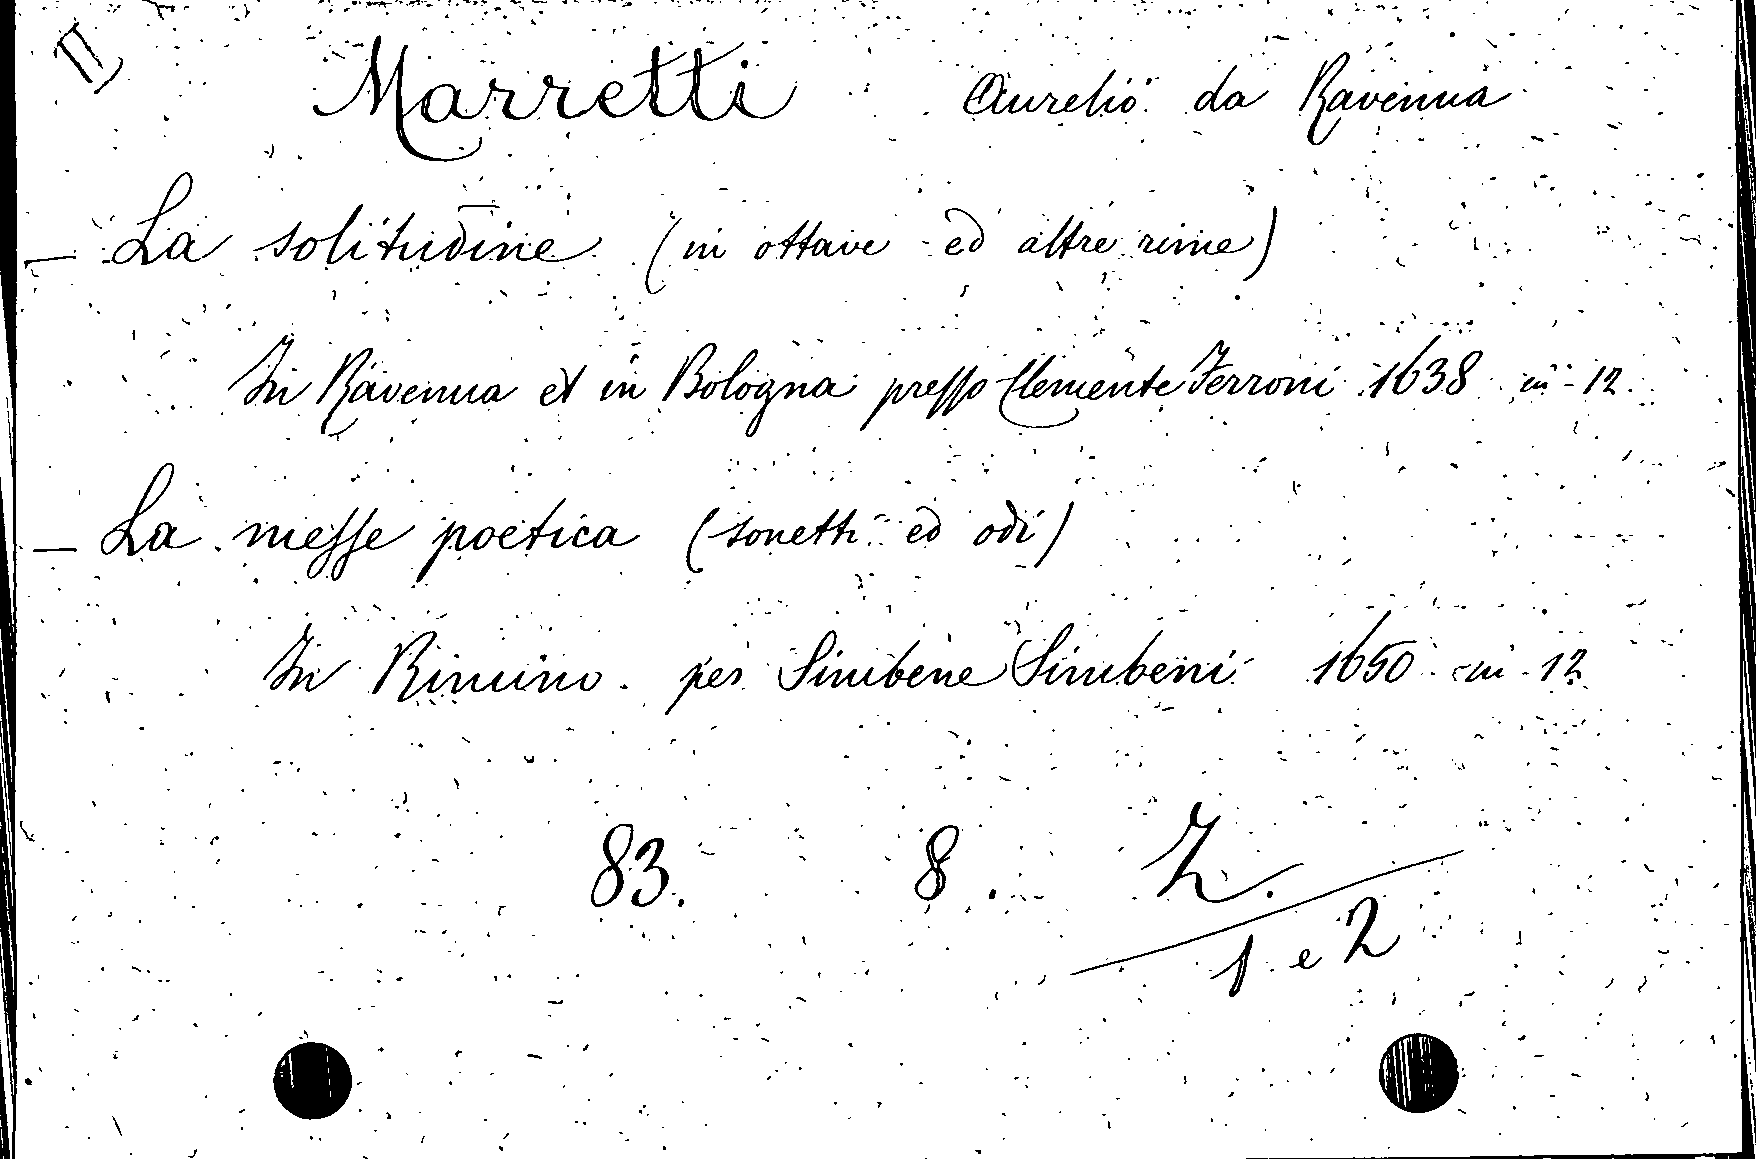 II
Marretti Aurelio da Ravenna
— La solitudine (in ottave ed altre rime)
In Ravenna et in Bologna presso Clemente Ferroni 1638 in-12.
— La messe poetica (sonetti ed odi)
In Rimino per Simbene Simbeni 1650 in 12
83. 8. Z.
1 e 2